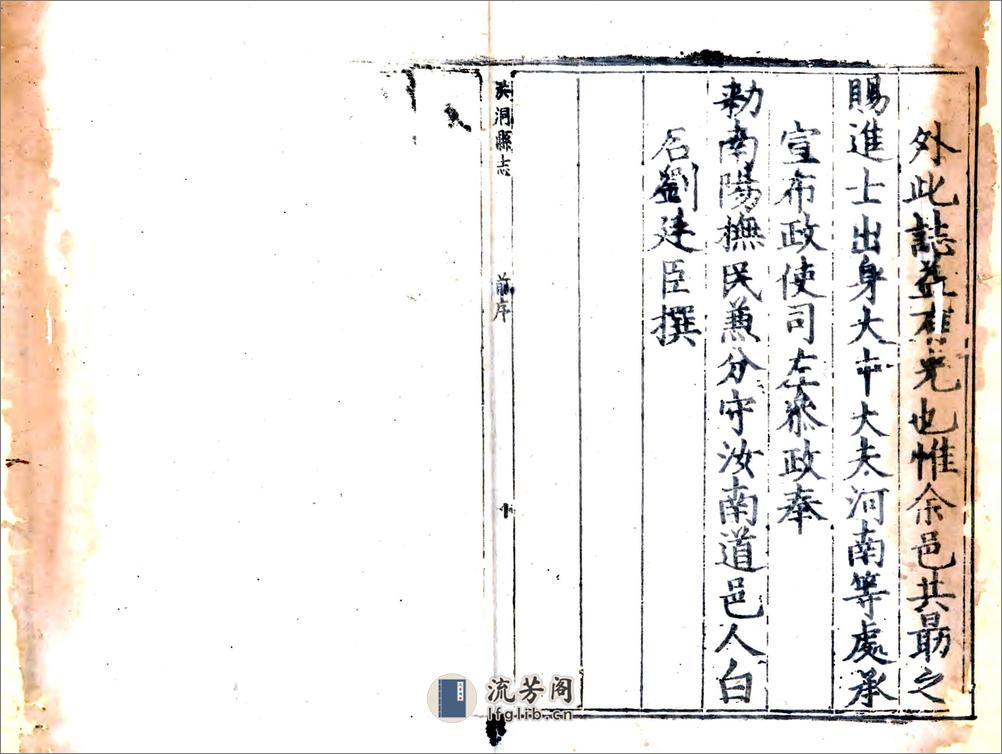 外此誌益有光也惟余邑共勗之
賜進士出身大中大夫河南等處承
宣布政使司左叅政奉
勅南陽撫民兼分守汝南道邑人白
石劉建臣撰
洪洞縣志 前序 十
流芳阁
lfglib.cn